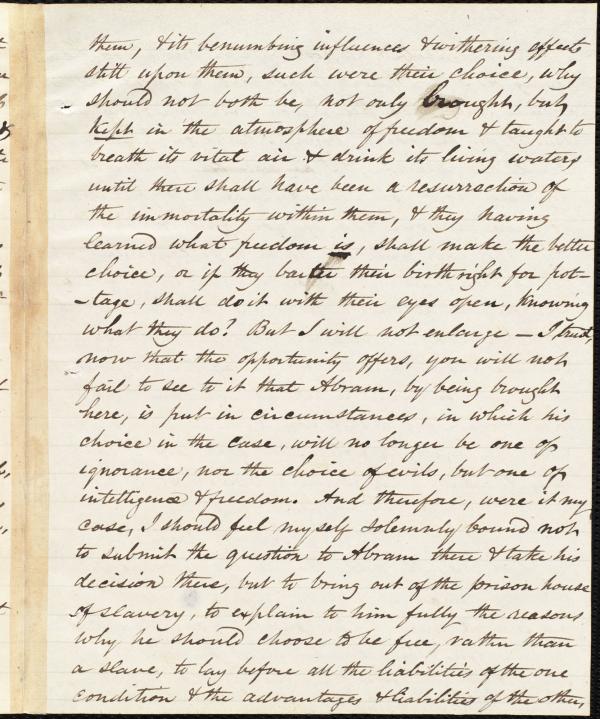 them, & its benumbing influences & withering effects
still upon them, such were their choice, why
should not both be, not only brought, but
kept in the atmosphere of freedom & taught to
breath its vital air & drink its living waters
until there shall have been a resurrection of
the immortality within them, & they having
learned what freedom is, shall make the better
choice, or if they barter their birthright for pot-
-tage, shall do it with their eyes open, knowing
what they do? But I will not enlarge — I trust,
now that the opportunity offers, you will not
fail to see to it that Abram, by being brought
here, is put in circumstances, in which his
choice in the case, will no longer be one of
ignorance, nor the choice of evils, but one of
intelligence & freedom. And therefore, were it my
case, I should feel myself solemnly bound not
to submit the question to Abram there & take his
decision there, but to bring out of the prison house
of slavery, to explain to him fully the reasons
why he should choose to be free, rather than
a slave, to lay before all the liabilities of the one
condition & the advantages & liabilities of the other,